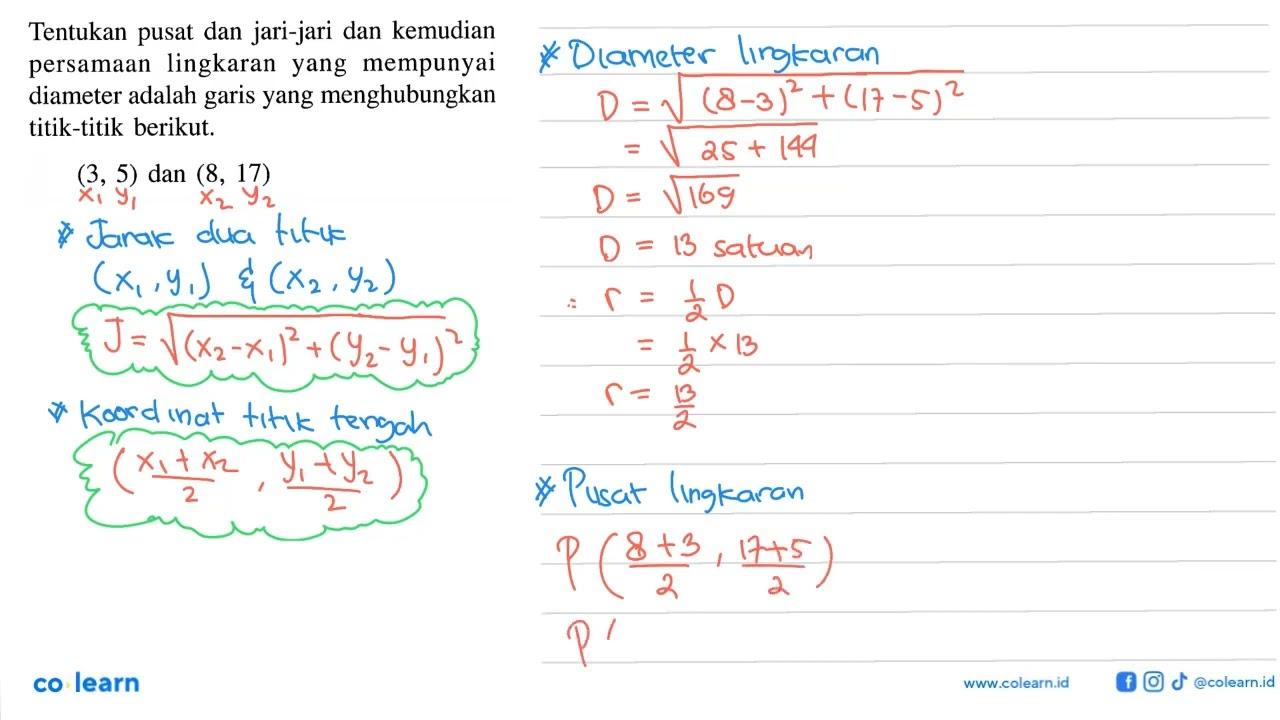 Tentukan pusat dan jari-jari dan kemudian
persamaan lingkaran yang mempunyai
diameter adalah garis yang menghubungkan
titik-titik berikut.
(3, 5) dan (8, 17)
x₁ y₁ x₂ y₂
* Jarak dua titik
(x₁, y₁) & (x₂, y₂)
J = √((x₂-x₁)² + (y₂-y₁)²)
* Koordinat titik tengah
((x₁ + x₂)/2, (y₁ + y₂)/2)
* Diameter lingkaran
D = √((8-3)² + (17-5)²)
= √(25 + 144)
D = √169
D = 13 satuan
∴ r = 1/2 D
= 1/2 × 13
r = 13/2
* Pusat lingkaran
P((8+3)/2, (17+5)/2)
P (
co learn
www.colearn.id @colearn.id